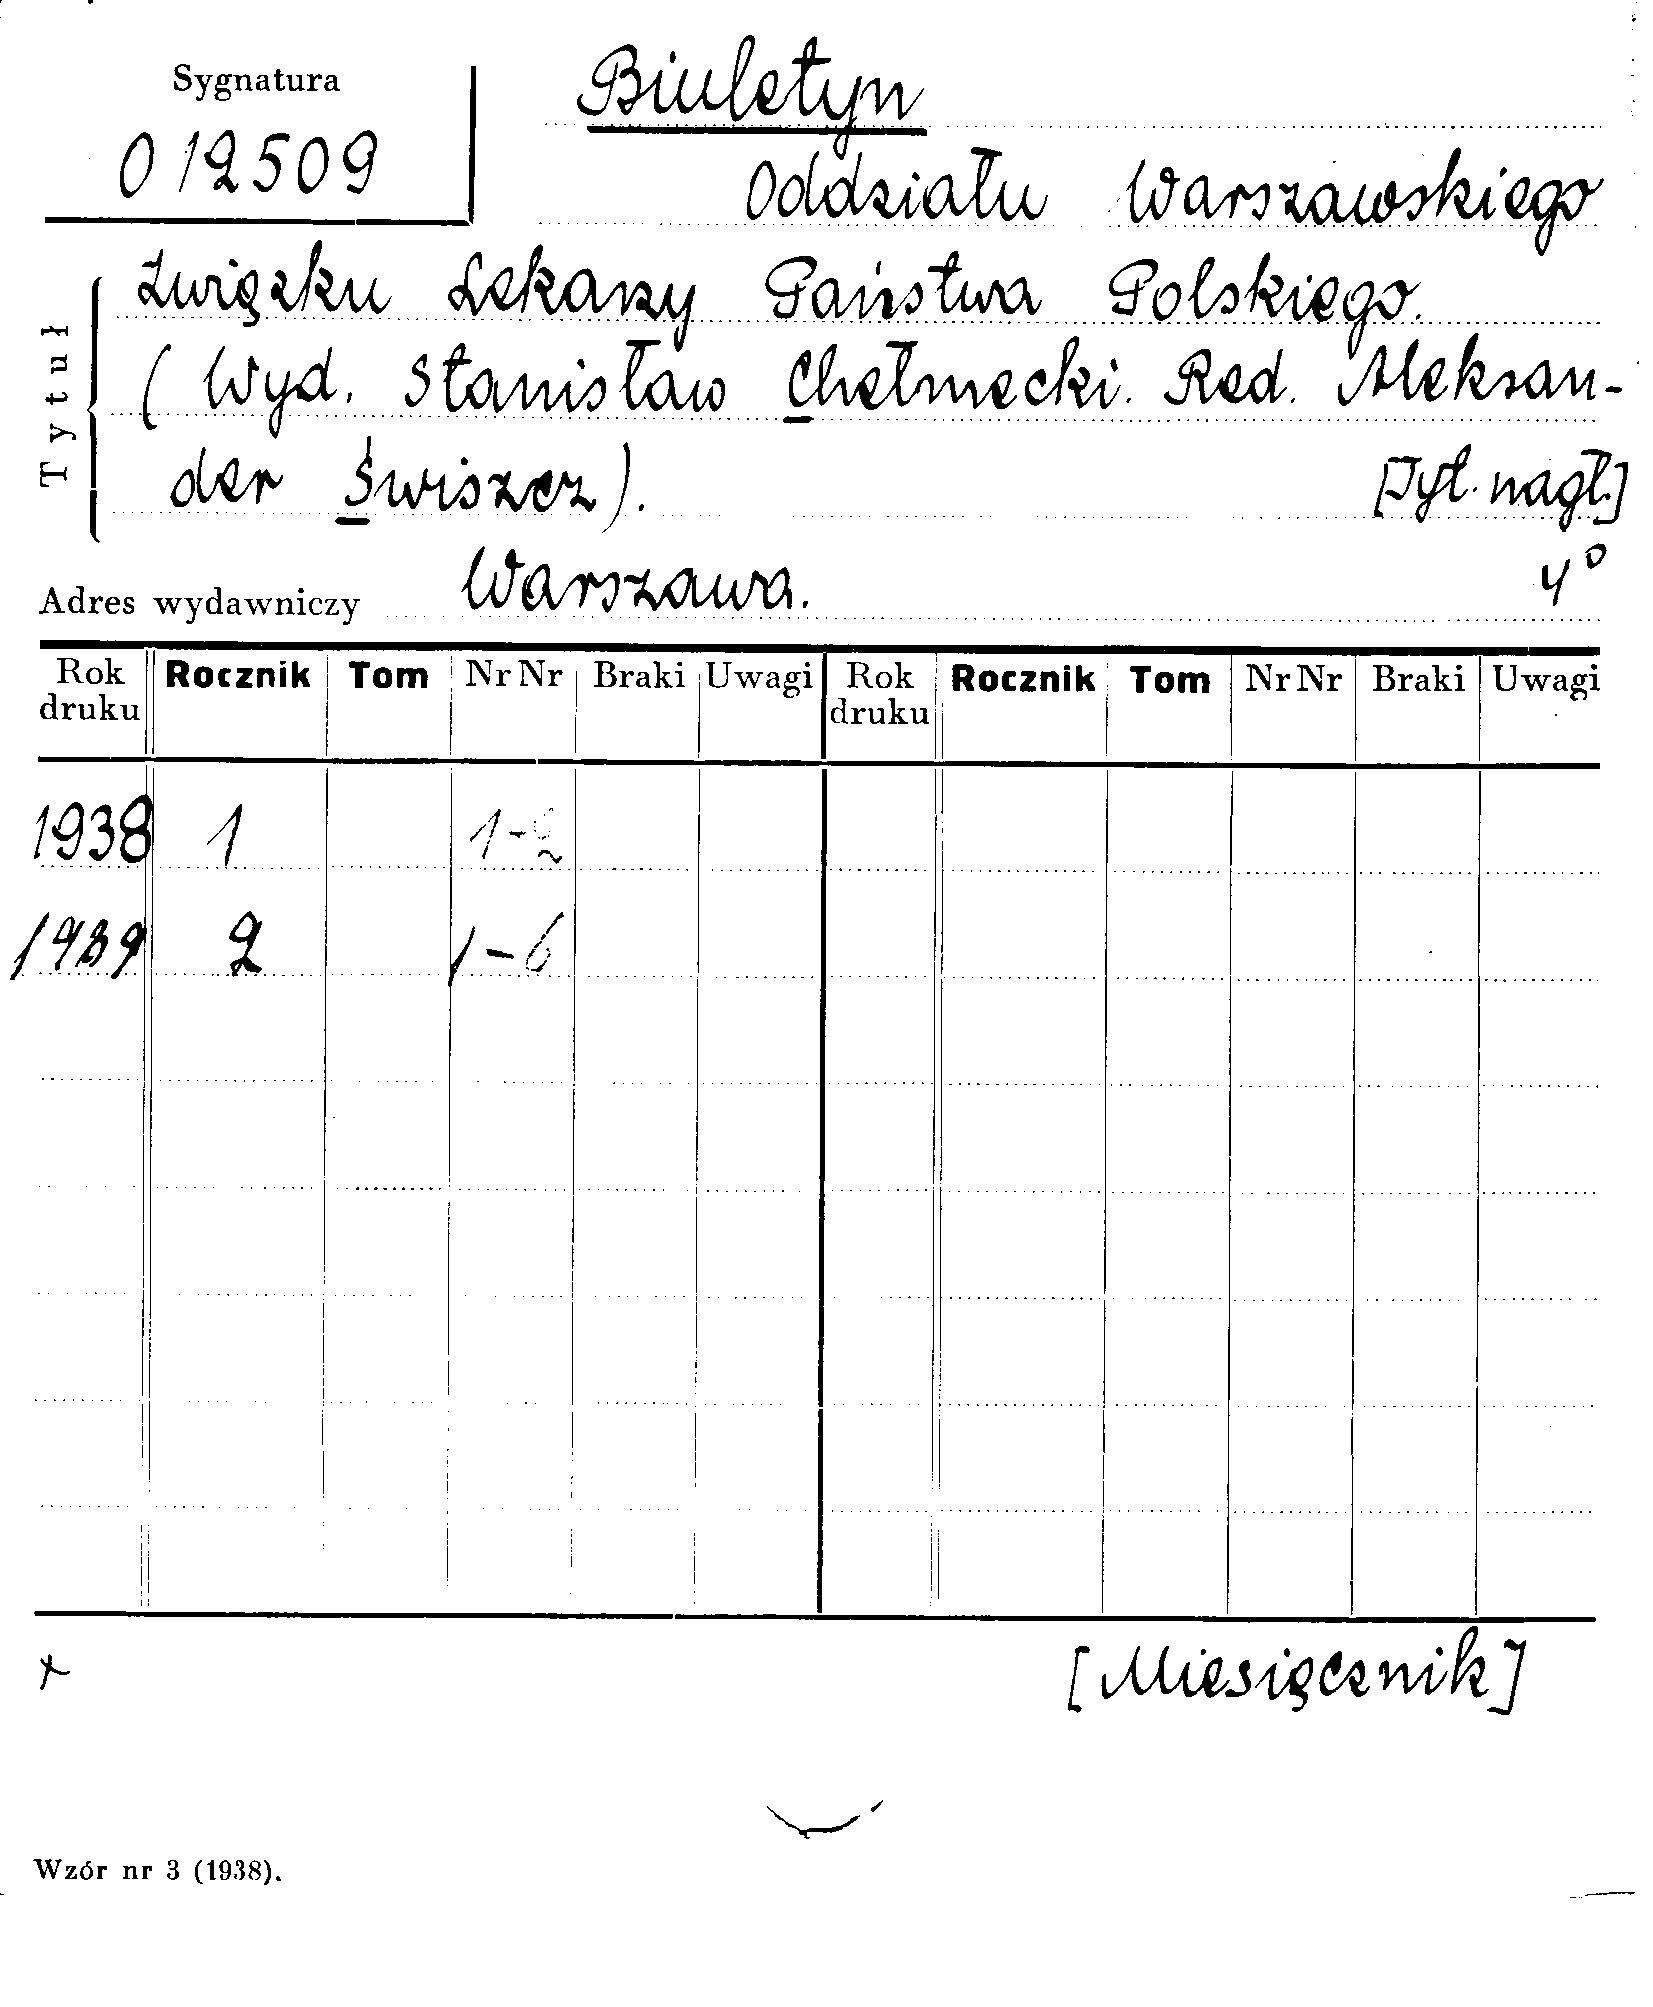 Sygnatura
012509
Biuletyn
Oddziału Warszawskiego
Tytuł
Związku Lekarzy Państwa Polskiego.
(Wyd. Stanisław Chełmecki. Red. Aleksan-
der Świszcz).
[Tyt. nagł.]
Adres wydawniczy Warszawa. 4°
Rok druku Rocznik Tom Nr Nr Braki Uwagi Rok druku Rocznik Tom Nr Nr Braki Uwagi
1938 1 1-2
1939 2 1-6
[Miesięcznik]
Wzór nr 3 (1938).